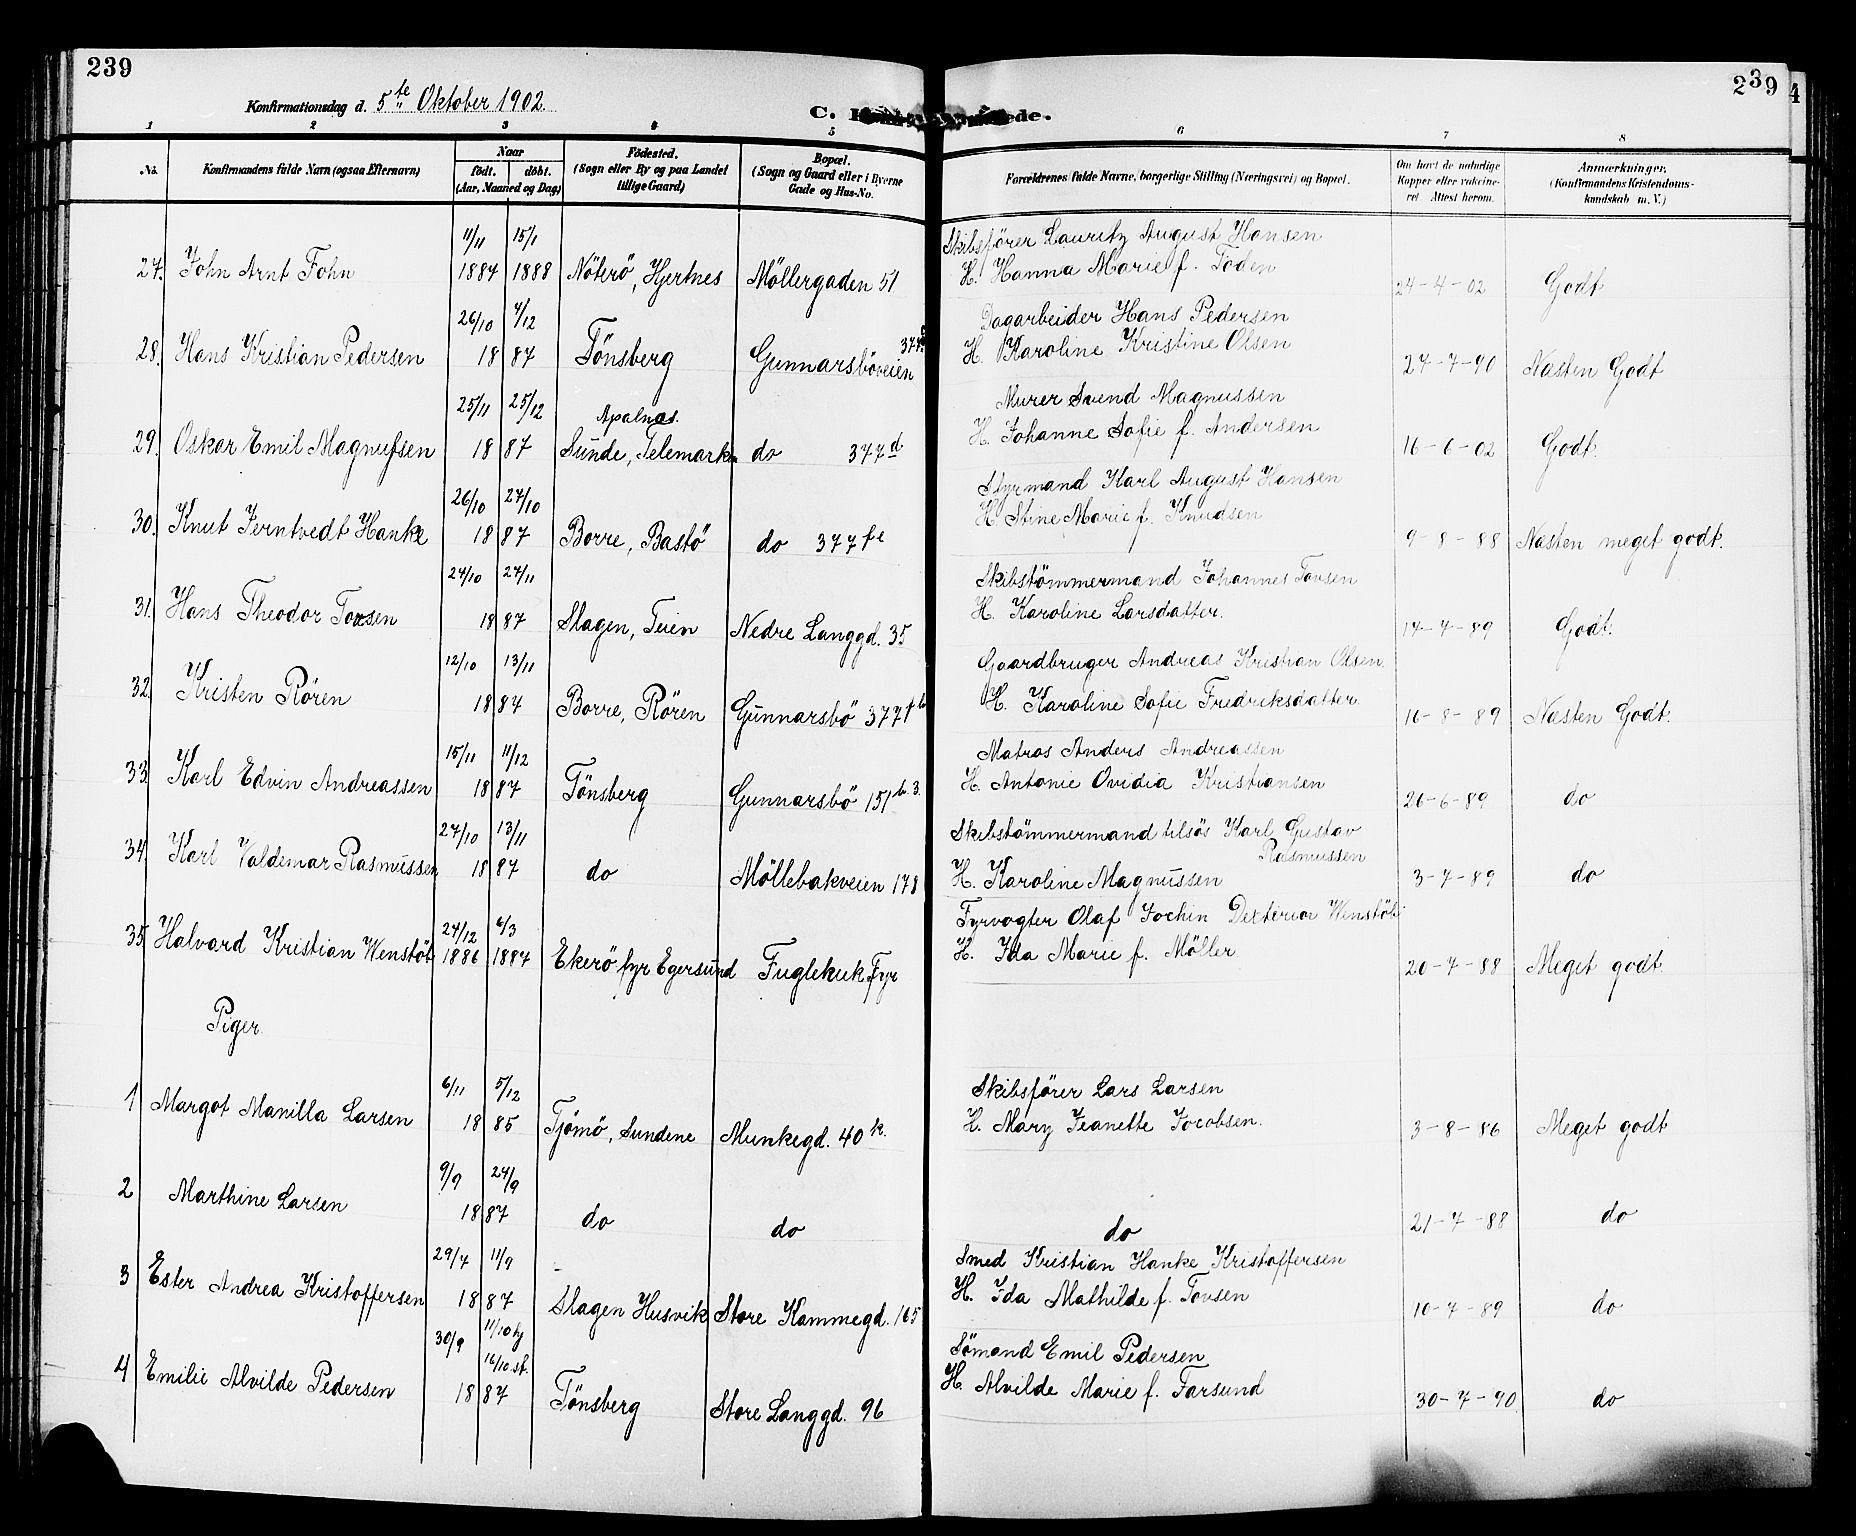 239
239
4
Konfirmationsdag d. 5te Oktober 1902.
C. ede.
1 2 3 4 5 6 7 8
No.
Konfirmandens fulde Navn (ogsaa Efternavn)
Naar
födt. döbt.
(Aar, Maaned og Dag)
Födested.
(Sogn eller By og paa Landet
tillige Gaard)
Bopæl.
(Sogn og Gaard eller i Byerne
Gade og Hus-No.
Forældrenes fulde Navne, borgerlige Stilling (Næringsvei) og Bopæl.
Om havt de naturlige
Kopper eller vakcine-
ret. Attest herom.
Anmærkninger,
(Konfirmandens Kristendoms-
kundskab m. V.)
11/11 15/1 Skibsförer Lauritz August Hansen
27. John Arnt Fohn 1887 1888 Nöterö, Hjertnes Möllergaden 51 H. Hanna Marie f. Foden 24-4-02 Godt
26/10 4/12 Dagarbeider Hans Pedersen
28. Hans Kristian Pedersen 18 87 Tönsberg Gunnarsböveien H. Karoline Kristine Olsen 27-7-90 Næsten Godt
25/11 25/12 Apalnæs. Murer Svend Magnussen
29. Oskar Emil Magnufsen 18 87 Sunde, Telemarken do 377d H. Johanne Sofie f. Andersen 16-6-02 Godt.
26/10 27/10 Styrmand Karl August Hansen
30. Knut Jerntvedt Hanke 18 87 Borre, Bastö do 377fe H. Stine Marie f. Knudsen 9-8-88 Næsten meget godt.
24/10 27/11 Skibstömmermand Johannes Tovsen
31. Hans Theodor 18 87 Slagen, Teien Nedre Langgd. 35 H. Karoline Larsdatter. 14-7-89 Godt.
12/10 13/11 Gaardbruger Andreas Kristian Olsen
32. Kristen Rören 18 87 Borre, Rören Gunnarsbö 377fb H. Karoline Sofie Fredriksdatter 16-8-89 Næsten Godt.
15/11 11/12 Matros Anders Andreassen
33. Karl Edvin Andreassen 18 87 Tönsberg Gunnarsbö 151b.3. H. Antonie Ovidia Kristiansen 26-6-89 do
27/10 13/11 Skibstömmermand tilsös Karl Gustav
Rasmussen
34. Karl Valdemar Rasmussen 18 87 do Möllebakveien 178 H. Karoline Magnussen 3-7-89 do
24/12 6/3 Fyrvogter Olaf Jochin Wenstöb
35. Halvard Kristian Wenstöb 1886 1887 Ekerö fyr Egersund Fuglehuk Fyr H. Ida Marie f. Möller 20-7-88 Meget godt.
Piger.
6/11 5/12 Skibsförer Lars Larsen
1 Margot Manilla Larsen 18 85 Tjömö, Sundene Munkegd. 40k. H. Mary Jeanette Jacobsen. 3-8-86 Meget godt
9/9 24/9
2 Marthine Larsen 18 87 do do do 21-7-88 do
29/7 11/9 Smed Kristian Hanke Kristoffersen
3 Ester Andrea Kristoffersen 18 87 Slagen Husvik Store Kammegd. 165 H. Ida Mathilde f. Tovsen 10-7-89 do
30/9 11/10 hj
16/10 st. Sömand Emil Pedersen
4 Emilie Alvilde Pedersen 18 87 Tönsberg Store Langgd. 96 H. Alvilde Marie f. Farsund 30-7-90 do